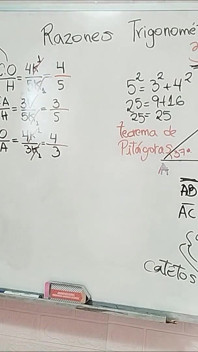 Razones Trigonomé
CO/H = 4K/5K = 4/5
A/H = 3K/5K = 3/5
O/A = 4K/3K = 4/3
5² = 3² + 4²
25 = 9 + 16
25 = 25
Teorema de
Pitágoras
37°
AB
AC
catetos